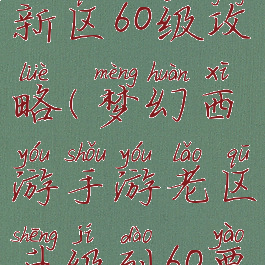 新区60级攻
lüè mèng huàn xī
略(梦幻西
yóu shǒu yóu lǎo qū
游手游老区
shēng jí dào yào
升级到60要